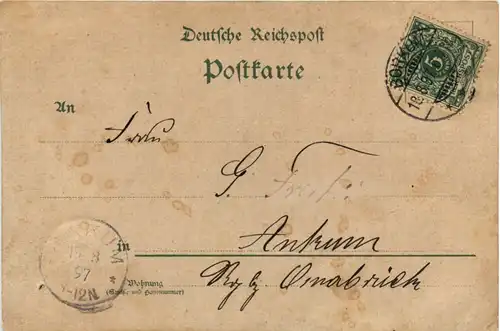 Deutsche Reichspost
Postkarte
An
Frau
G.
in Ankum
Rgbz Osnabrück
Wohnung
(Straße und Hausnummer)
5